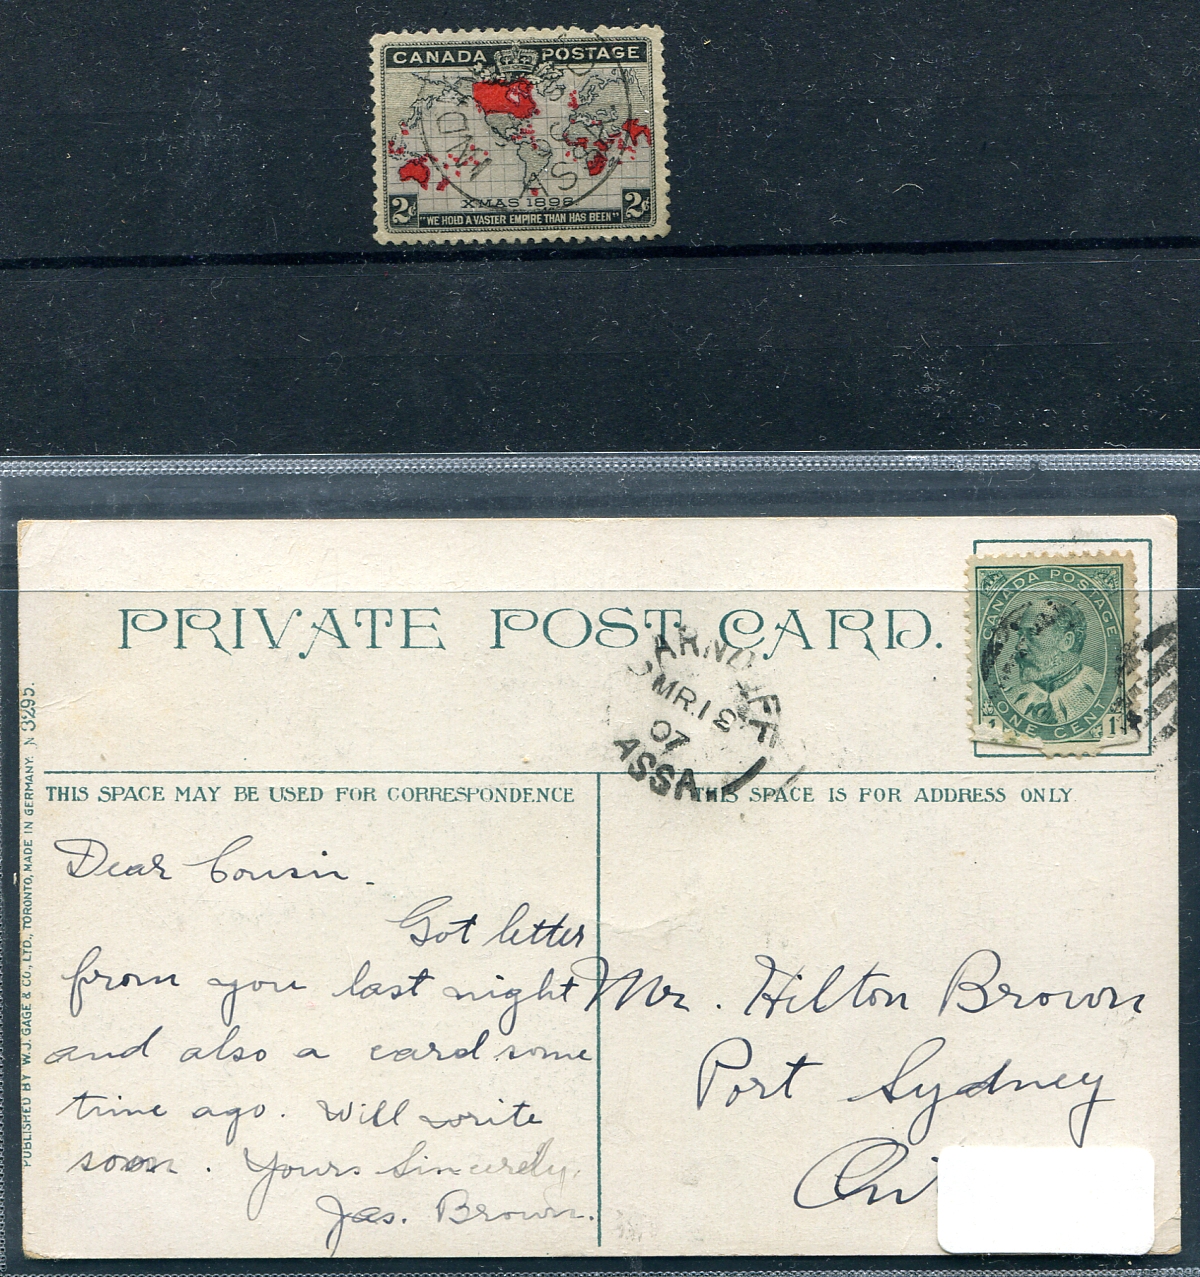 CANADA POSTAGE
XMAS 1898
2¢ 2¢
"WE HOLD A VASTER EMPIRE THAN HAS BEEN"
ASSA
PRIVATE POST CARD.
CANADA POSTAGE
ONE CENT
1 1
MR 18
07
ASSA.
THIS SPACE MAY BE USED FOR CORRESPONDENCE
THIS SPACE IS FOR ADDRESS ONLY
PUBLISHED BY W.J. GAGE & CO., LTD., TORONTO, MADE IN GERMANY. N 3295.
Dear Cousin.
Got letter
from you last night
and also a card some
time ago. Will write
soon. Yours Sincerely,
Jas. Brown.
Mr. Hilton Brown
Port Sydney